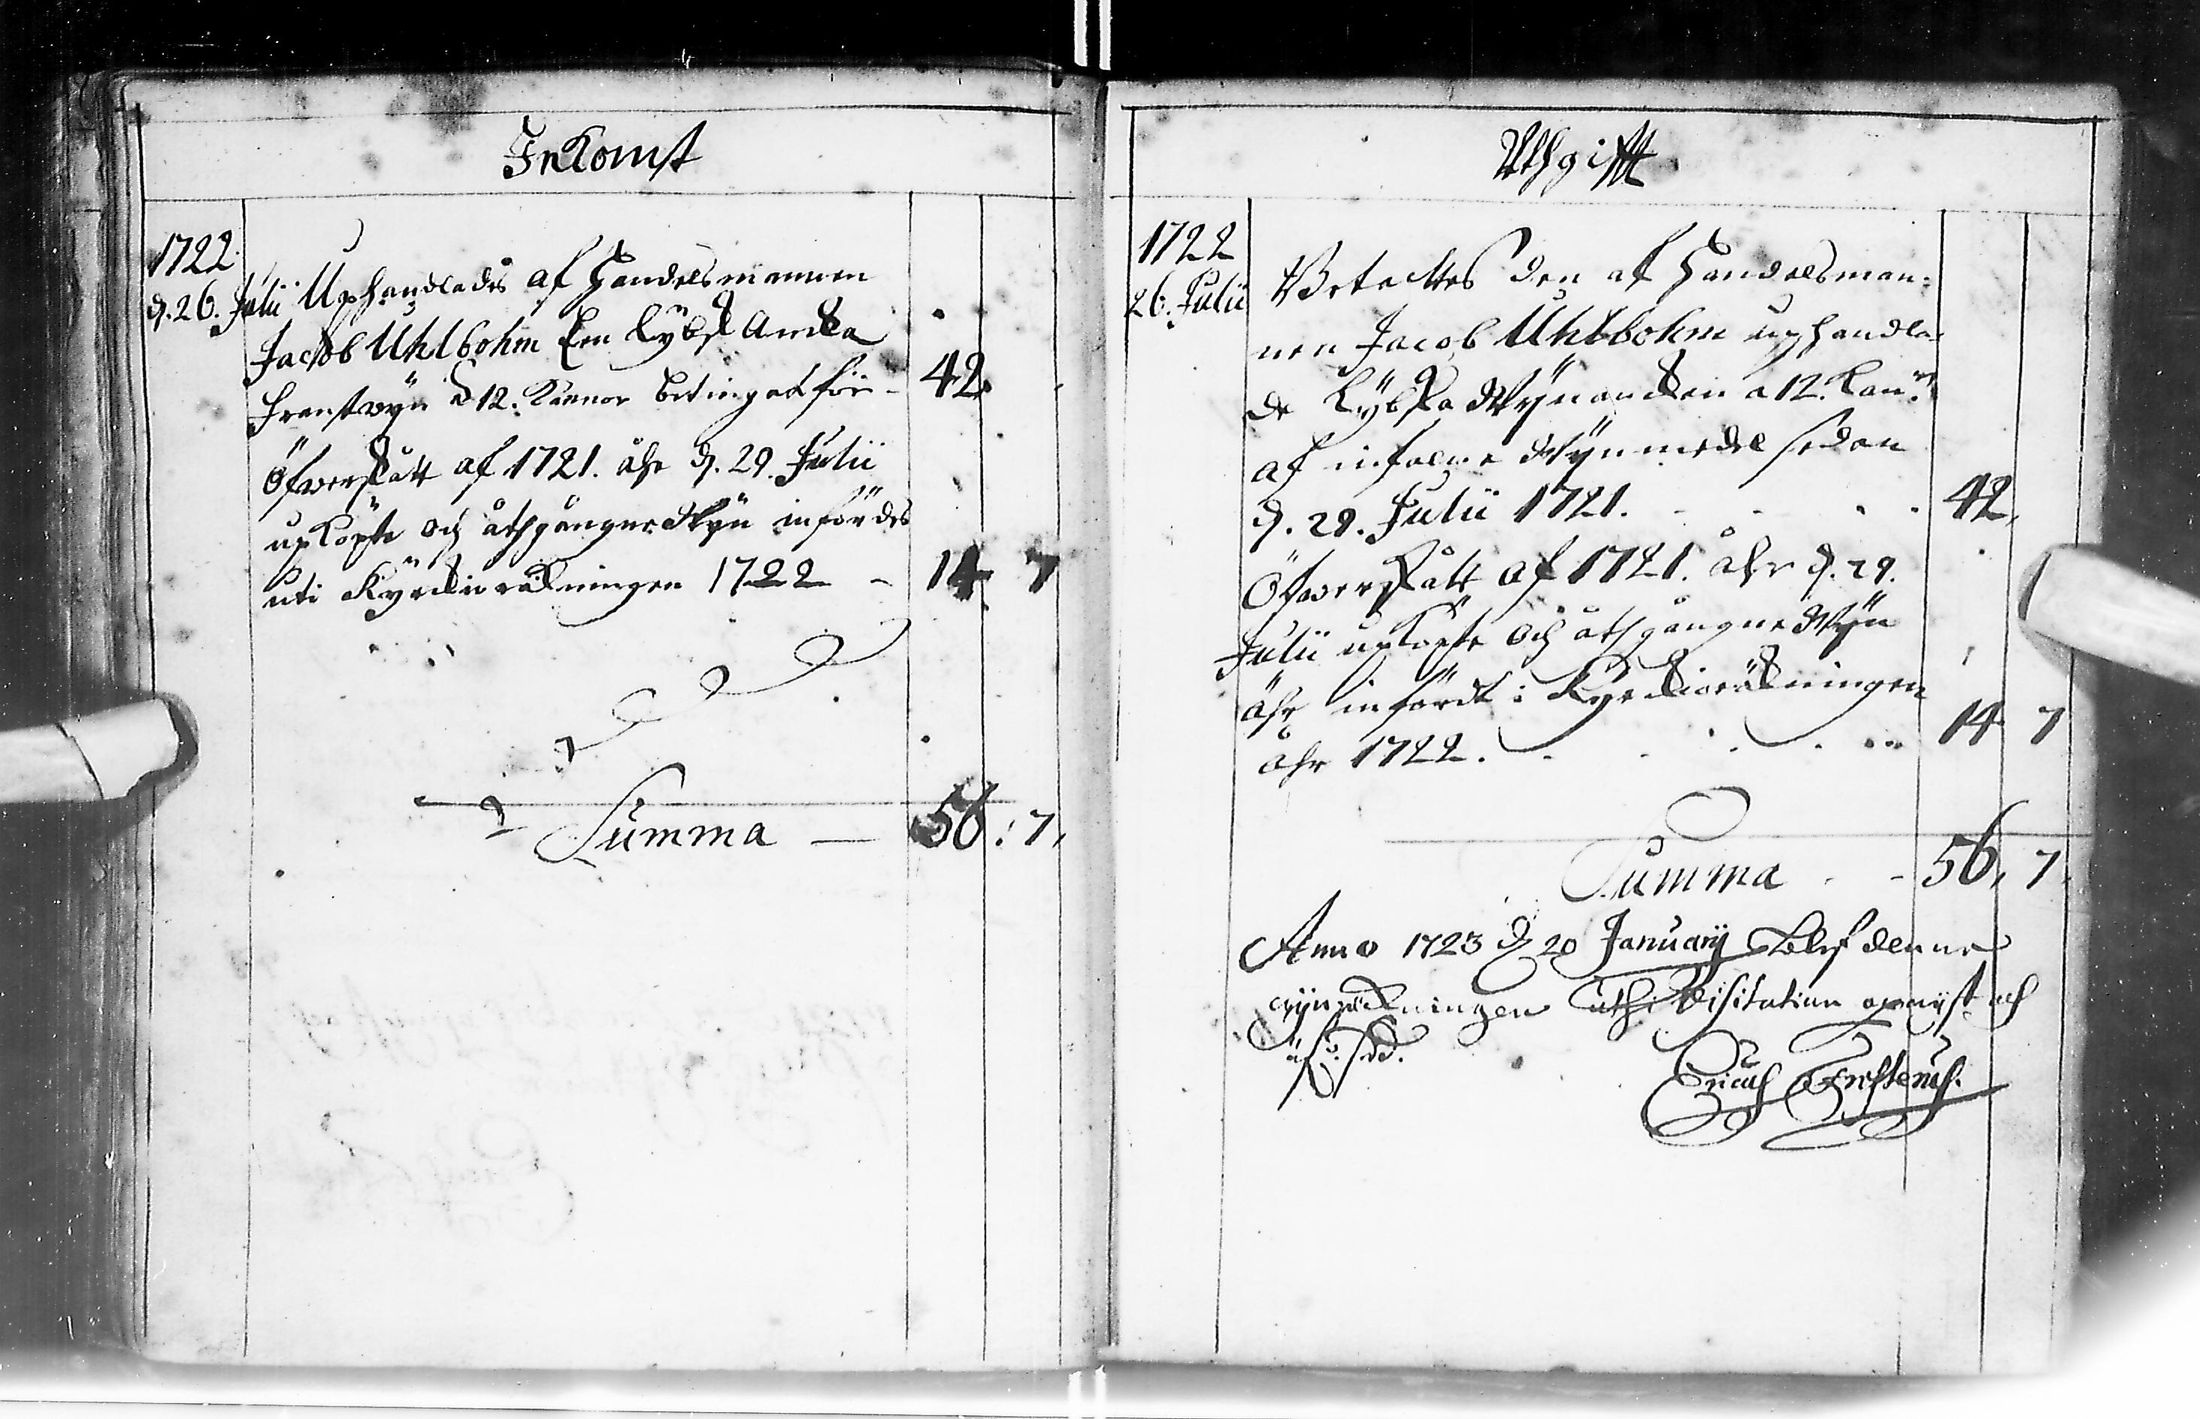 Inkomst
1722
d. 26. Julii Uphandlades af Handelsmannen
Jacob Uhlbohm En Lybsk Ancka
franst wyn à 12. Kannor betingat för - 42
Öfwerskått af 1721. åhr d. 29. Julii
upköpte och åthgångne Wyn infördes
uti Kyrckioräkningen 1722 - 14 7
Summa — 56 : 7,
Uthgifft
1722
26. Julii Betaltes den af Handelsman-
nen Jacob Uhlbohm uphandla-
de Lybska Wynanckan a 12. Kan:r
af influtne Wynmedel sedan
d. 29. Julii 1721. - - - 42,
Öfwerskått af 1721. åhr d. 29.
Julii upköpte och åthgångne Wyn
åhr infördt i Kyrckioräkningen
åhr 1722. - - - 14 7
Summa - - 56, 7,
Anno 1723 d 20 January blef denne
wynräkningen uthi Visitation och
Ericus